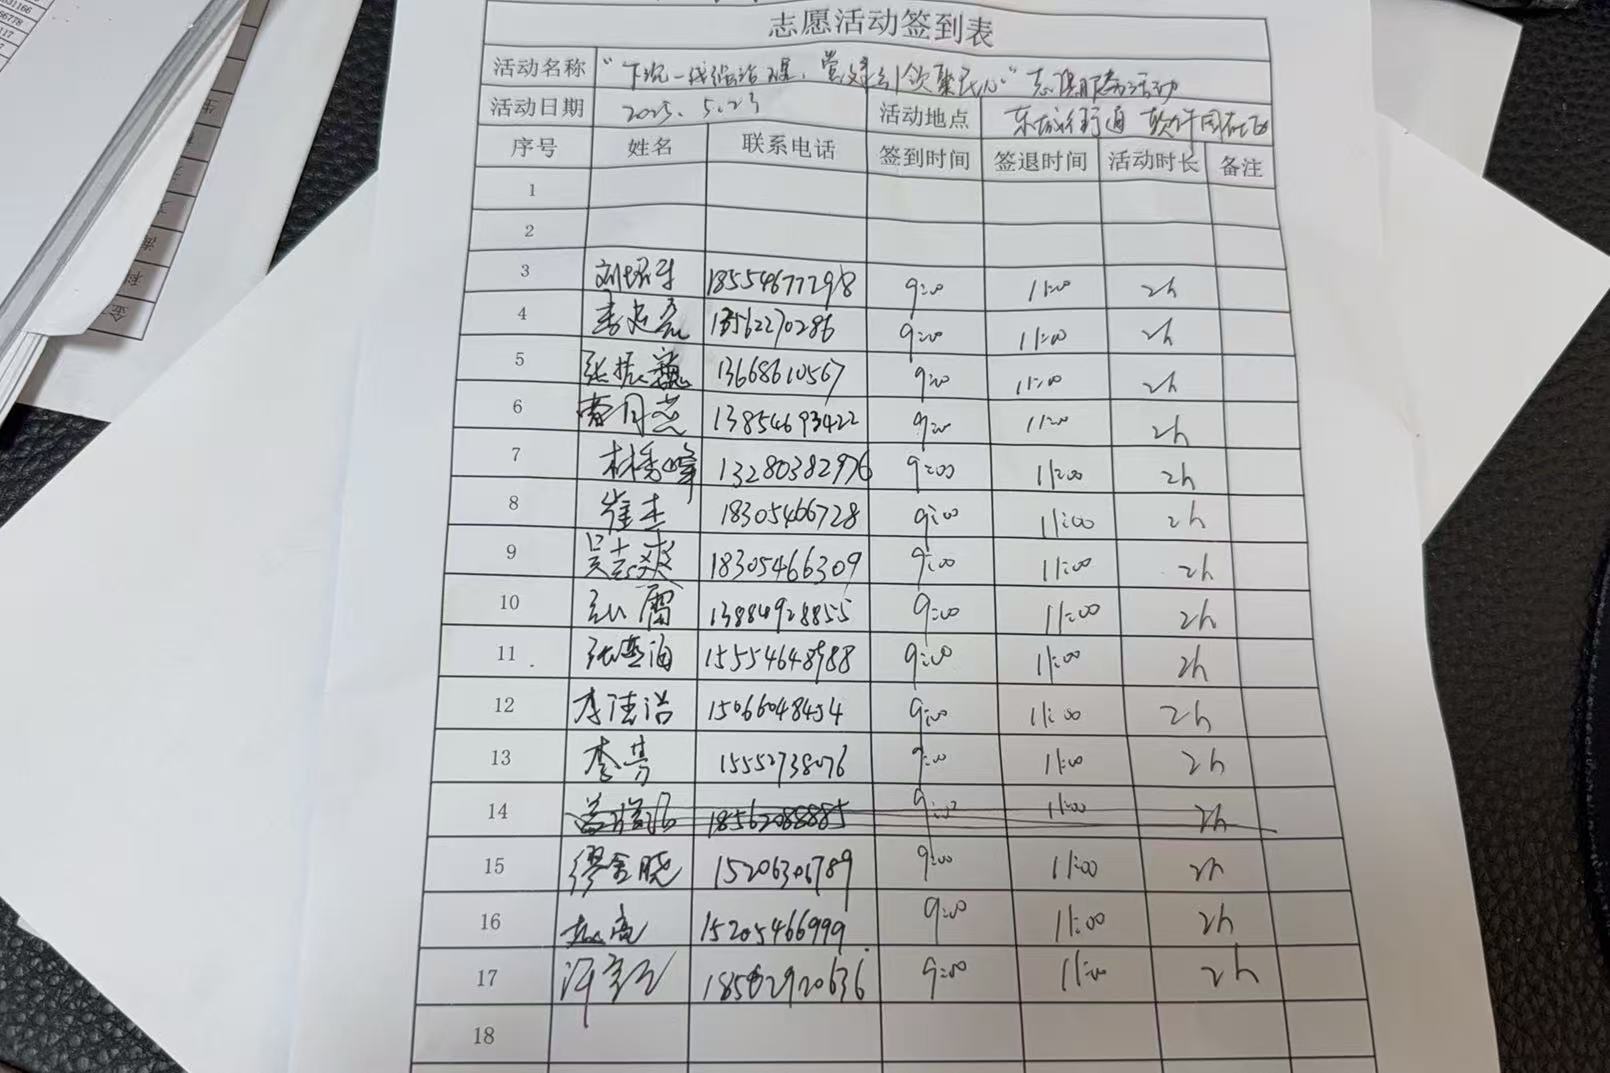 志愿活动签到表
活动名称 "下沉一线 党建引领聚民心"志愿服务活动
活动日期 2025.5.23 活动地点 东城街道 软件园社区
序号 姓名 联系电话 签到时间 签退时间 活动时长 备注
1
2
3 18554677298 9:00 11:00 2h
4 13562270286 9:00 11:00 2h
5 张振巍 13668610567 9:00 11:00 2h
6 13854693422 9:00 11:00 2h
7 林秀峰 13280382976 9:00 11:00 2h
8 崔杰 18305466728 9:00 11:00 2h
9 吴喆爽 18305466309 9:00 11:00 2h
10 13884928855 9:00 11:00 2h
11 15554648988 9:00 11:00 2h
12 李佳浩 15066048454 9:00 11:00 2h
13 李芳 15552738076 9:00 11:00 2h
14 18562088885 9:00 11:00 2h
15 缪金晓 15206306789 9:00 11:00 2h
16 15205466999 9:00 11:00 2h
17 18562920636 9:00 11:00 2h
18